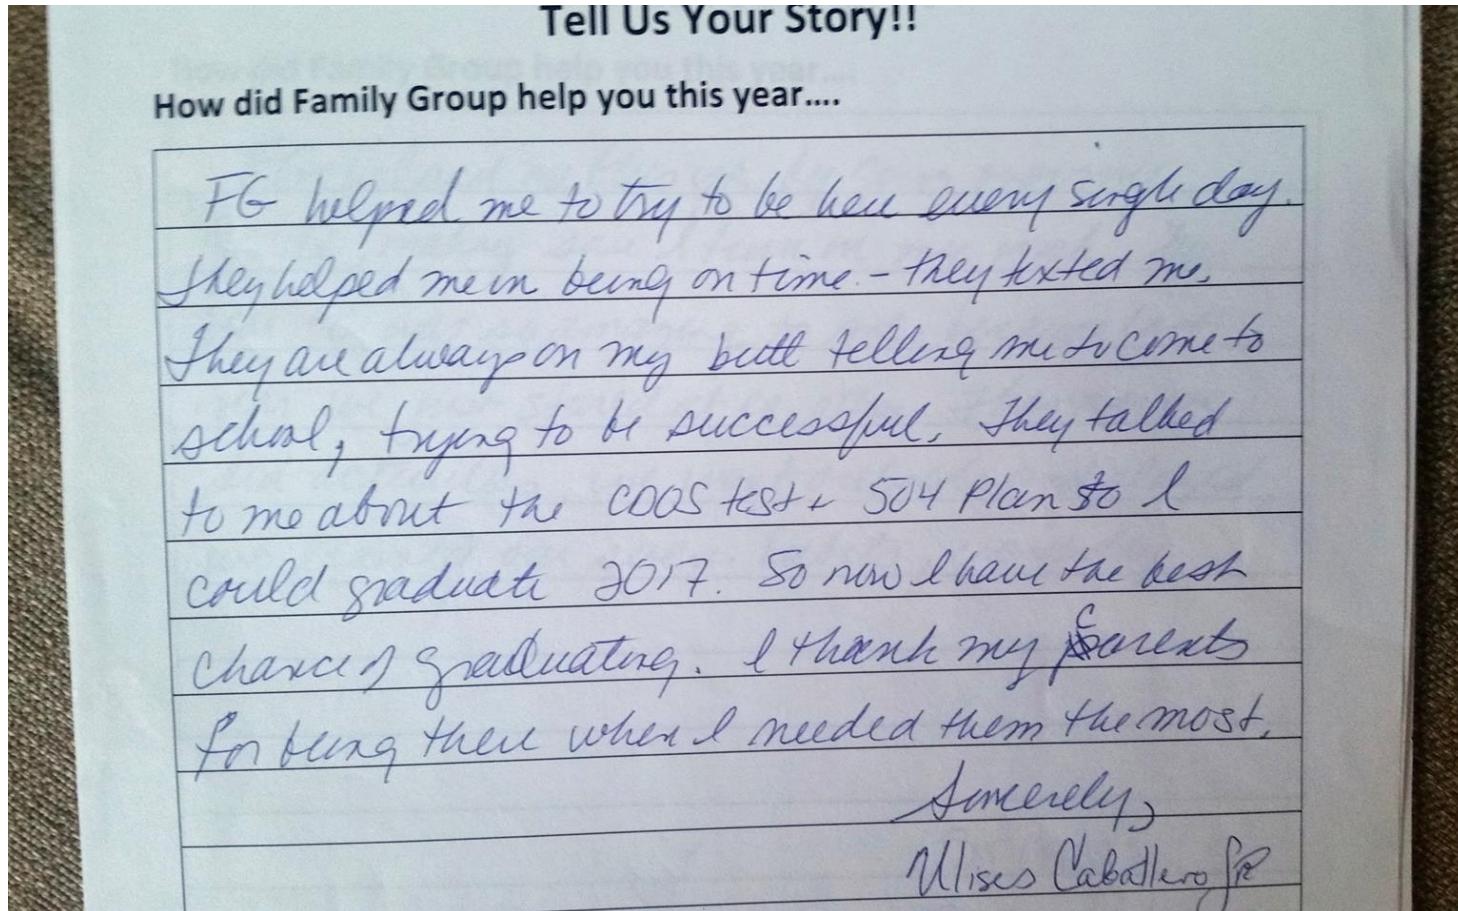 Tell Us Your Story!!
How did Family Group help you this year....
FG helped me to try to be here every single day.
They helped me in being on time - they texted me.
They are always on my butt telling me to come to
school, trying to be successful. They talked
to me about the CDOS test + 504 Plan so I
could graduate 2017. So now I have the best
chance of graduating. I thank my Carents
for being there when I needed them the most.
Sincerely,
Ulises Caballero JR